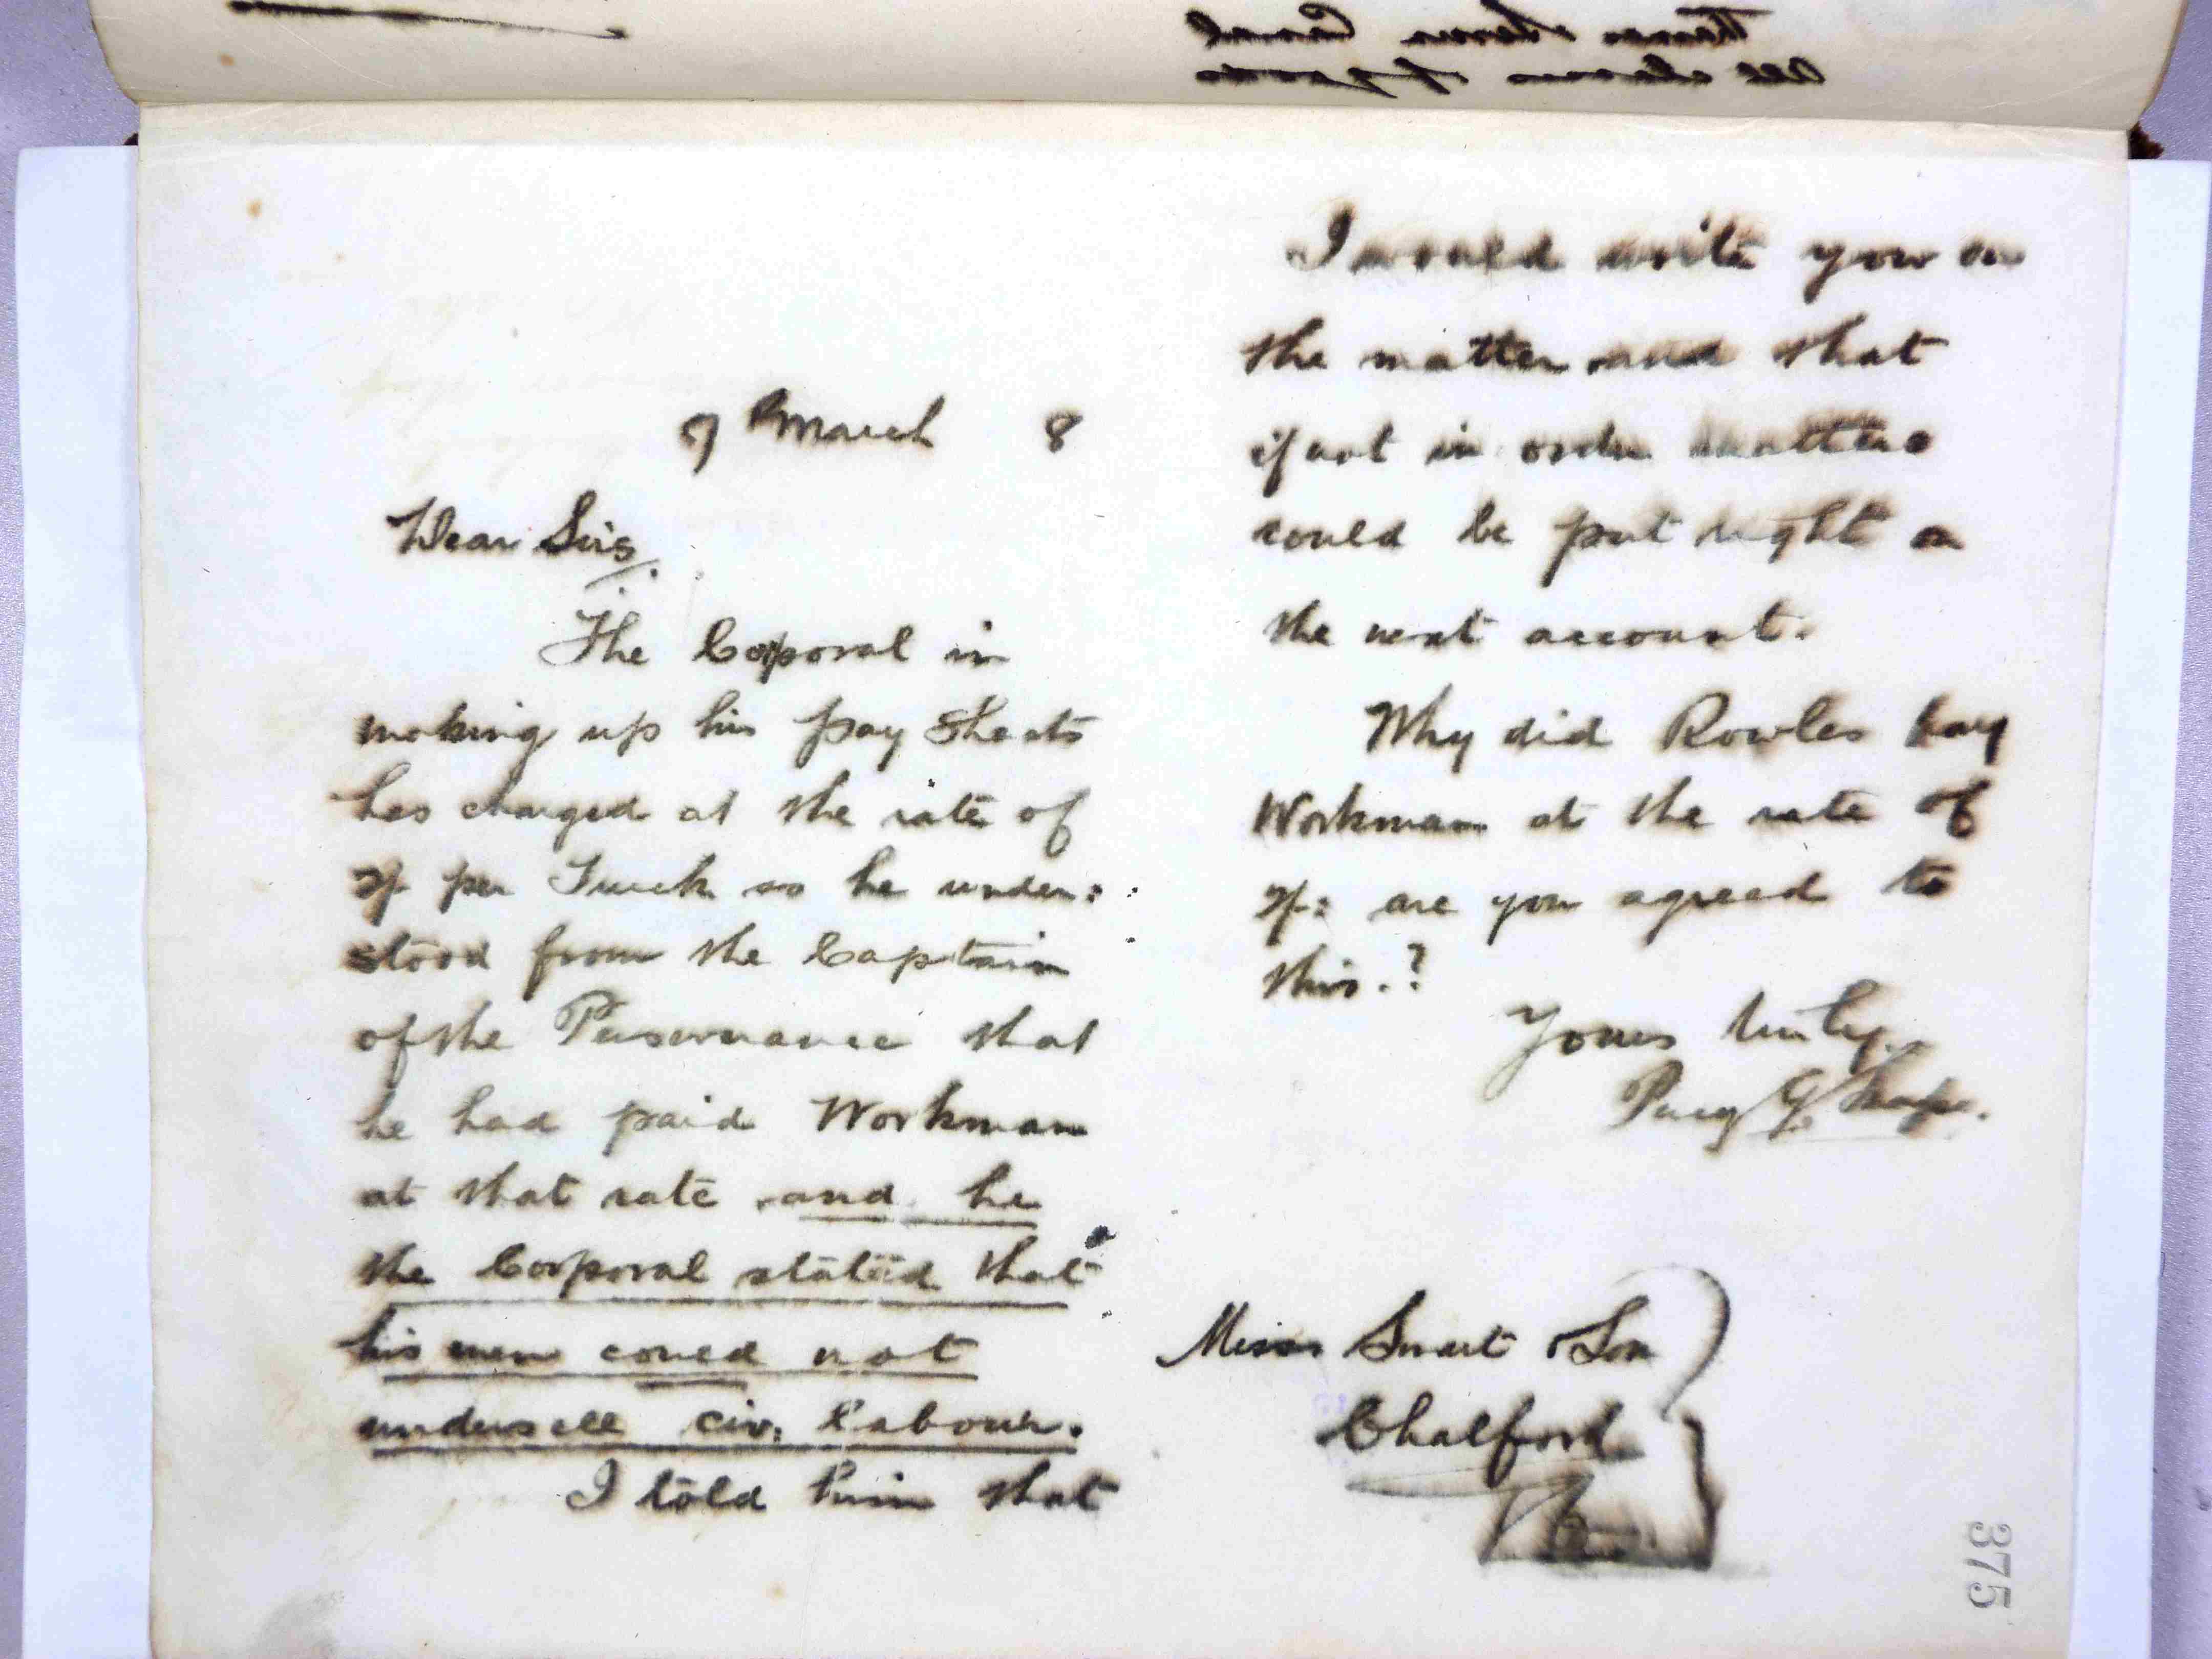 9 March 8
Dear Sirs,
The Corporal in
making up his pay sheets
has charged at the rate of
per Truck as he under:
stood from the Captain
of the Perseverance that
he had paid Workman
at that rate and he
the Corporal stated that
his men could not
undersell civ: labour.
I told him that
I would write you on
the matter and that
if not in order matters
could be put right on
the next account.
Why did Rowles pay
Workman at the rate of
are you agreed to
this.?
Yours truly
Percy G.
Messrs Smart & Son
Chalford
375